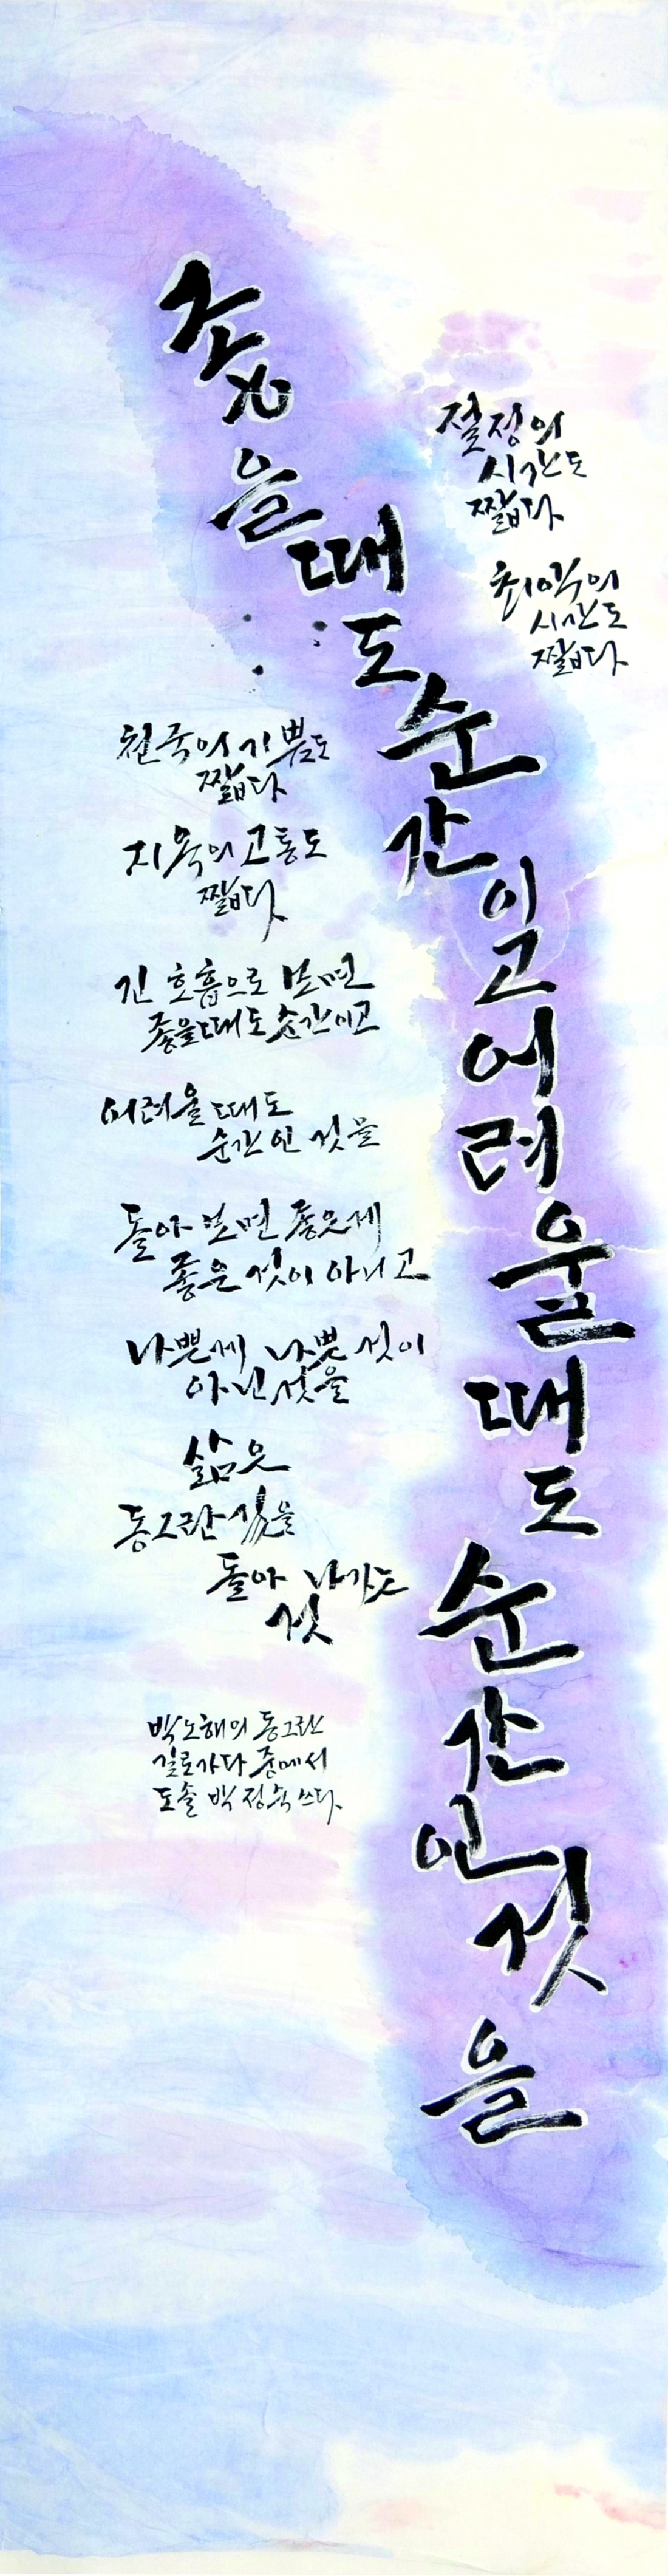 좋
을
때
도
순
간
이
고
어
려
울
때
도
순
간
인
것
을
절정의
시간도
짧다
최악의
시간도
짧다
천국의 기쁨도
짧다
지옥의 고통도
짧다
긴 호흡으로 보면
좋을때도 순간이고
어려울 때도
순간인 것을
돌아 보면 좋은게
좋은 것이 아니고
나쁜게 나쁜 것이
아닌것을
삶은
동그란 길을
돌아 나가는
것
박노해의 동그란
길로가다 중에서
도솔 박정숙 쓰다.